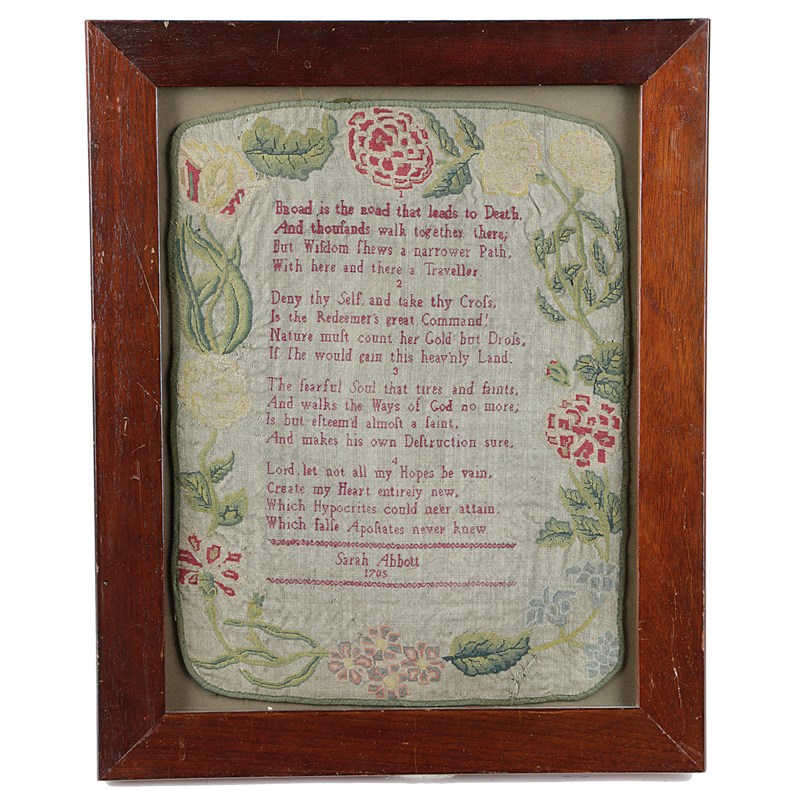 1
Broad is the road that leads to Death,
And thouſands walk together there;
But Wiſdom ſhews a narrower Path,
With here and there a Traveller.
2
Deny thy Self, and take thy Croſs,
Is the Redeemer's great Command!
Nature muſt count her Gold but Droſs,
If ſhe would gain this heav'nly Land.
3
The fearful Soul that tires and faints,
And walks the Ways of God no more;
Is but eſteem'd almoſt a ſaint,
And makes his own Deſtruction sure.
4
Lord, let not all my Hopes be vain,
Create my Heart entirely new,
Which Hypocrites could ne'er attain,
Which falſe Apoſtates never knew
Sarah Abbott
1705